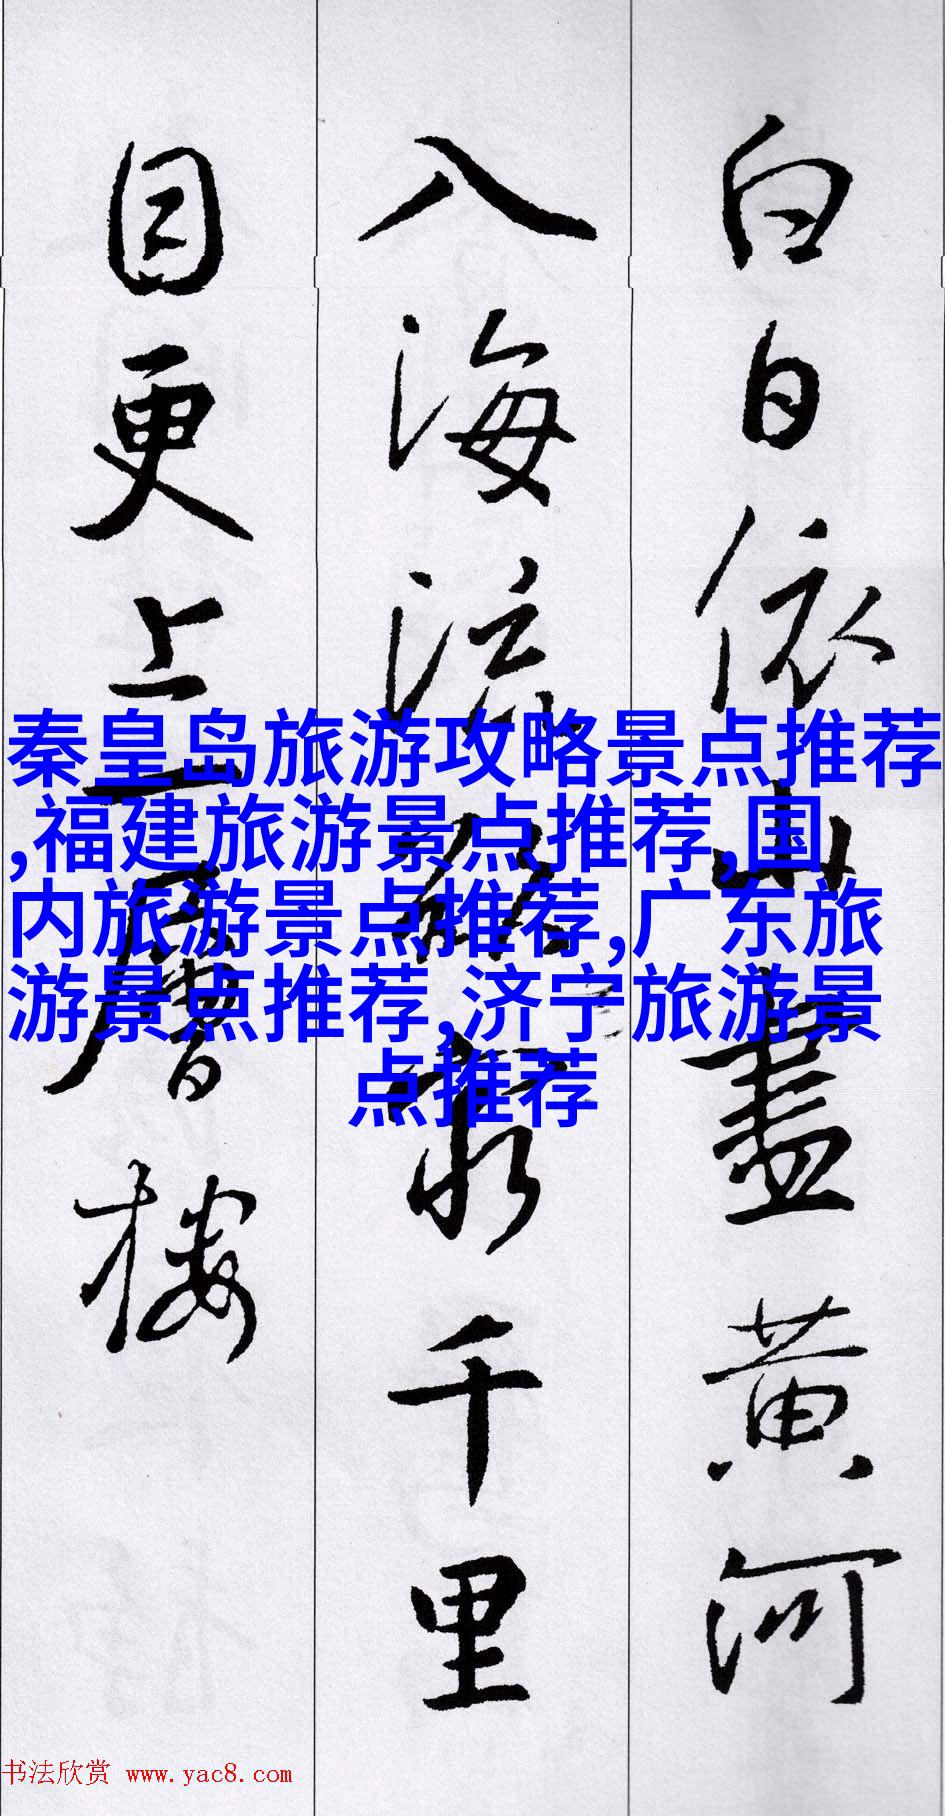 白日依山盡黄河
入海流欲窮千里
目更上一層樓
秦皇岛旅游攻略景点推荐
,福建旅游景点推荐,国
内旅游景点推荐,广东旅
游景点推荐,济宁旅游景
点推荐
书法欣赏 www.yac8.com